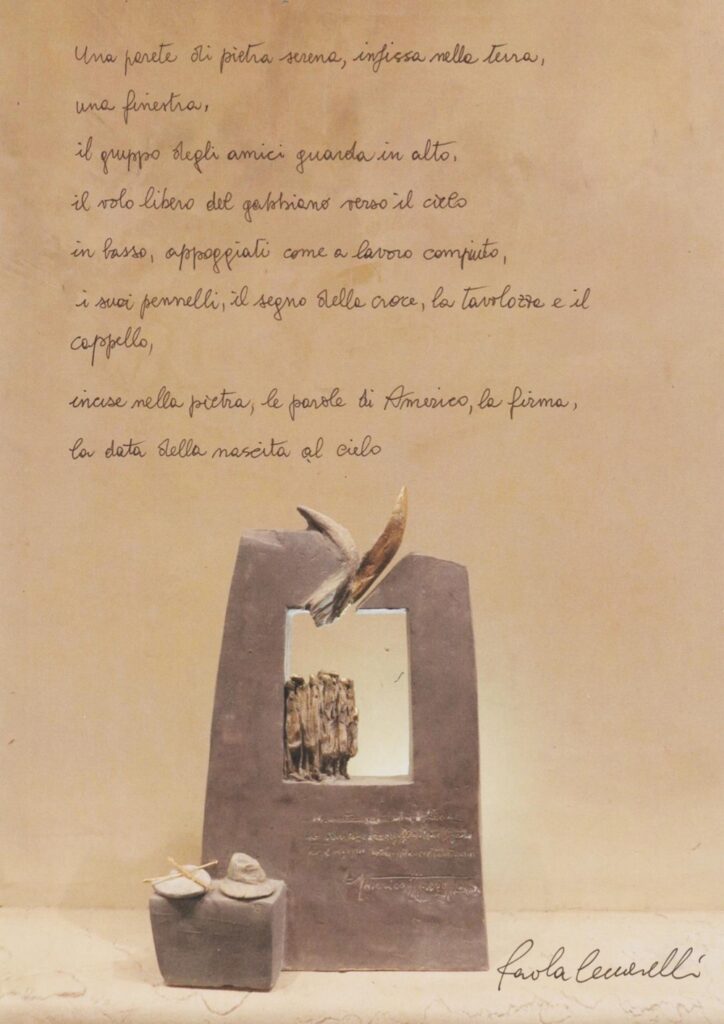 Una parete di pietra serena, infissa nella terra,
una finestra,
il gruppo degli amici guarda in alto,
il volo libero del gabbiano verso il cielo
in basso, appoggiati come a lavoro compiuto,
i suoi pennelli, il segno della croce, la tavolozza e il
cappello,
incise nella pietra, le parole di Americo, la firma,
la data della nascita al cielo
Paola